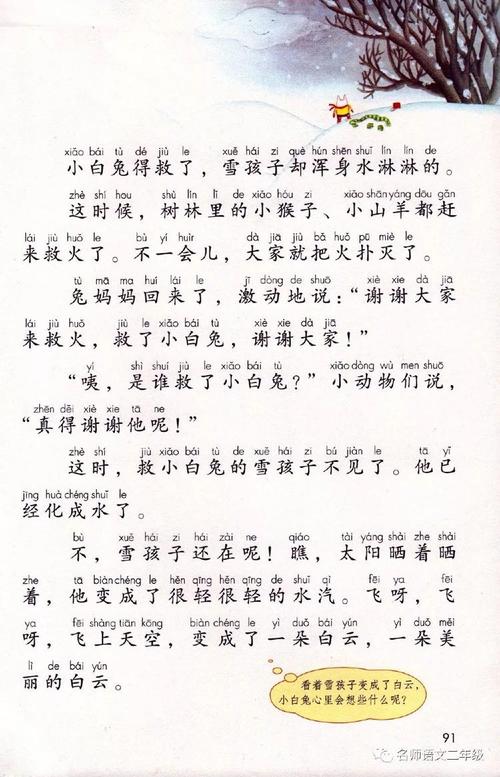 xiǎo bái tù dé jiù le xuě hái zi què hún shēn shuǐ lín lín de
小白兔得救了，雪孩子却浑身水淋淋的。
zhè shí hou shù lín lǐ de xiǎo hóu zi xiǎo shān yáng dōu gǎn
这时候，树林里的小猴子、小山羊都赶
lái jiù huǒ le bù yí huìr dà jiā jiù bǎ huǒ pū miè le
来救火了。不一会儿，大家就把火扑灭了。
tù mā ma huí lái le jī dòng de shuō xiè xie dà jiā
兔妈妈回来了，激动地说：“谢谢大家
lái jiù huǒ jiù le xiǎo bái tù xiè xie dà jiā
来救火，救了小白兔，谢谢大家！”
yí shì shuí jiù le xiǎo bái tù xiǎo dòng wù men shuō
“咦，是谁救了小白兔？”小动物们说，
zhēn děi xiè xie tā ne
“真得谢谢他呢！”
zhè shí jiù xiǎo bái tù de xuě hái zi bú jiàn le tā yǐ
这时，救小白兔的雪孩子不见了。他已
jīng huà chéng shuǐ le
经化成水了。
bù xuě hái zi hái zài ne qiáo tài yáng shài zhe shài
不，雪孩子还在呢！瞧，太阳晒着晒
zhe tā biàn chéng le hěn qīng hěn qīng de shuǐ qì fēi ya fēi
着，他变成了很轻很轻的水汽。飞呀，飞
ya fēi shàng tiān kōng biàn chéng le yì duǒ bái yún yì duǒ měi
呀，飞上天空，变成了一朵白云，一朵美
lì de bái yún
丽的白云。
看着雪孩子变成了白云，
小白兔心里会想些什么呢？
91
名师语文二年级